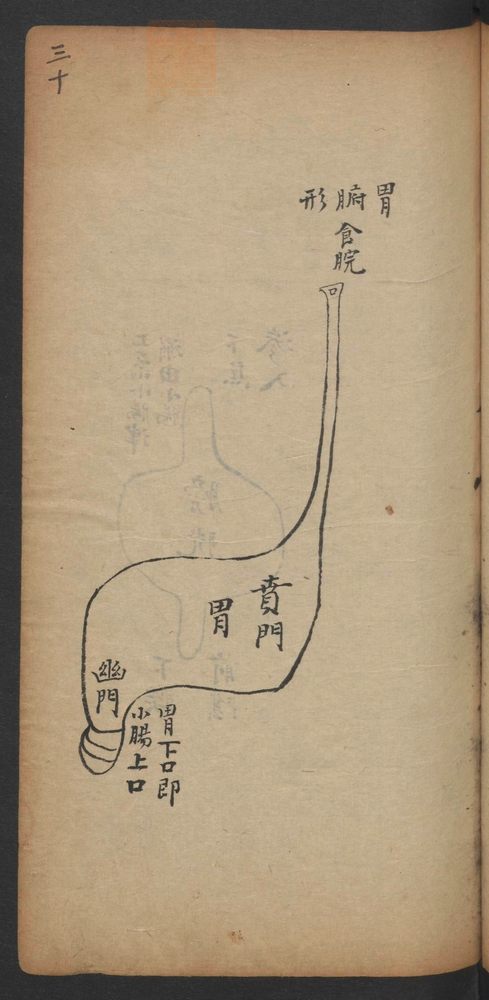 三十
胃
腑
形
食脘
賁門
胃
幽門
胃下口即
小腸上口